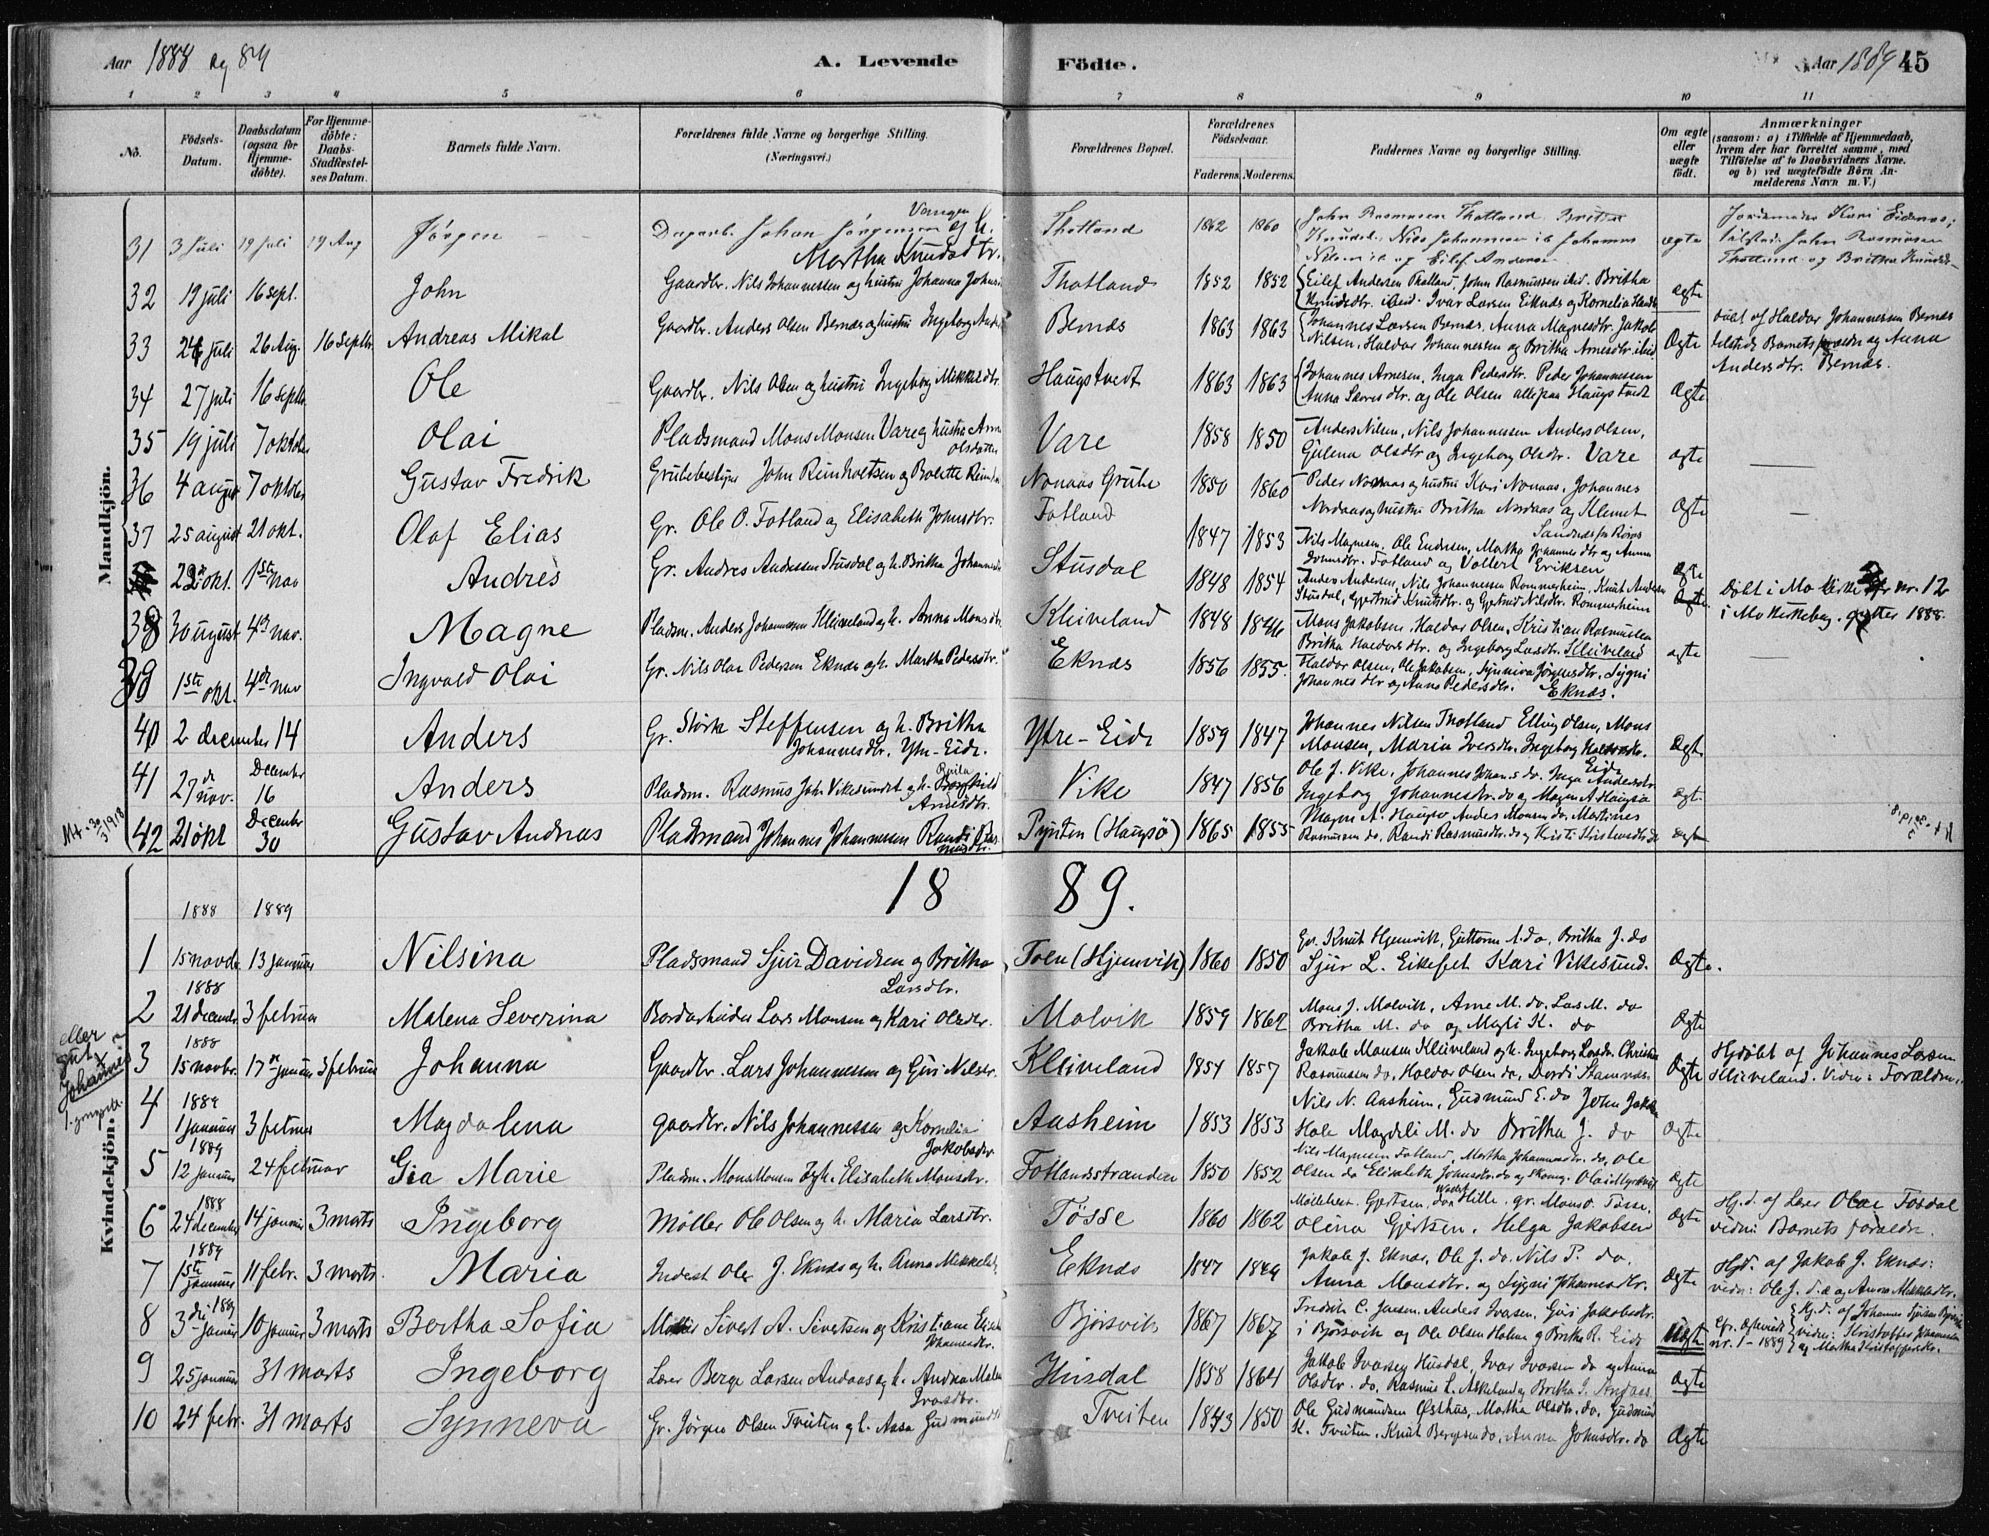 Aar 1888 og 89 A. Levende Födte. Aar 1889 45
1 2 3 4 5 6 7 8 9 10 11
No. Födsels-Datum. Daabsdatum (ogsaa for Hjemme-döbte). For Hjemme-döbte: Daabs-Stadfæstel-ses Datum. Barnets fulde Navn. Forældrenes fulde Navne og borgerlige Stilling. (Næringsvei.) Forældrenes Bopæl. Forældrenes Födselsaar. Faderens. Moderens. Faddernes Navne og borgerlige Stilling. Om ægte eller uægte födt. Anmærkninger (saasom: a) i Tilfælde af Hjemmedaab, hvem der har forrettet samme, med Tilföielse af to Daabsvidners Navne. og b) ved uægtefödte Börn An-melderens Navn m. V.)
Mandkjön.
31 3 Juli 19 Juli 19 Aug Jørgen Dagarb. Johan Jørgensen Vangen og h. Martha Knudsdtr. Thotland 1862 1860 John Rasmusen Thotland Britha Knudsd. Nils Johannesen ib Johannes Nilsen ib og Eilef Andersen ægte Jordemoder Kari Eidnes; tilstede John Rasmusen Thotland og Britha Knuds-
32 19 juli 16 sept. John Gaardbr. Nils Johannessen og hustru Johanna Johns Thotland 1852 1852 Eilef Andersen Thotland, John Rasmussen ibid. Britha Knudsdtr. ibid. Ivar Larsen Eiknes og Kornelia ægte
33 24 juli 26 Aug. 16 Septbr. Andreas Mikal Gaardbr. Anders Olsen Bernæs og hustru Ingeborg Bernæs 1863 1863 Johannes Larsen Bernæs, Anna Magnesdtr. Jakob Nilsen, Haldor Johannessen og Britha Arnesdtr. ibid Ægte Døbt af Haldor Johannessen Bernæs tilstede Barnets forældre og Anna Andersdtr. Bernæs.
34 27 juli 16 septbr. Ole Gaardbr. Nils Olsen og hustru Ingeborg Mikkelsdtr. Haugstvedt 1863 1863 Johannes Arnesen, Inga Pedersdtr. Peder Johannessen Anna Larsdtr. og Ole Olsen alle paa Haugstvedt Ægte
35 19 juli 7 oktober Olai Pladsmand Mons Monsen Vare og hustru Anna Olsdatter Vare 1858 1850 Anders Nilsen, Nils Johannessen Anders Olsen, Gulena Olsdtr og Ingeborg Olsdtr. Vare ægte
36 4 august 7 oktober Gustav Fredrik Grubebestyrer John Reinholtsen og Bolette Nonaas Grube 1850 1860 Peder Nonaas og hustru Kari Nonaas, Johannes Nordaas og hustru Britha Nordaas og Klemet Sandnes fra Røros Ægte
37 25 august 21 okt. Olaf Elias Gr. Ole O. Fotland og Elisabeth Johnsdtr. Fotland 1847 1853 Nils Magnesen, Ole Endresen, Martha Johannesdtr og Anna Fotland og Vollert Eriksen Ægte
22 okt. 1ste nov Andrés Gr. Andres Andersen Stusdal og h. Britha Johannesdtr Stusdal 1848 1854 Anders Andersen, Nils Johannessen Rommerheim, Knut Andersen Stusdal, Gjertrud Knutsdtr. og Gjertrud Nilsdtr. Rommerheim Ægte Døbt i Mo Kirke nr. 12 i Mo Kirkebog. 1888.
38 30 august 4de nov. Magne Pladsm. Anders Johannessen Kleiveland og h. Anna Monsdtr. Kleiveland 1848 1846 Mons Jakobsen, Haldor Olsen, Kristian Rasmussen Britha Haldorsdtr. og Ingeborg Larsdtr. Kleiveland ægte
39 1ste okt. 4de nov Ingvald Olai Gr. Nils Olai Pedersen Eknæs og h. Martha Pedersdtr. Eknæs 1856 1855. Haldor Olsen, Ole Jakobsen, Synneva Jørgensdtr. Sygni Johannesdtr og Anna Pedersdtr. Eknæs.
40 2 december 14 Anders Gr. Størk Steffensen og h. Britha Johannesdtr. Ytre-Eide. Ytre-Eide 1859 1847 Johannes Nilsen Thotland Elling Olsen, Mons Monsen, Maria Iversdtr. Ingeborg Eide Ægte
41 27de nov. December 16 Anders Pladsm. Rasmus Joh. Vikesundet og h. Arnesdtr. Vike 1847 1856 Ole J. Vike, Johannes Johans do. Inga Andersdtr Ingeborg Johannesdtr. do og Magne A Haugsø ægte
Mt. 30/3 1918 42 21 okt December 30 Gustav Andreas Pladsmand Johannes Johannessen Randi Rasmusdtr. Pynten (Haugsø) 1865 1855 Magne A. Haugsø Anders Monsen do. Martines Rasmusen do. Randi Rasmusdtr. do og Kristi ægte
18 89.
1888 1889
Kvindekjön.
1 15 novbr 13 januar Nilsina Pladsmand Sjur Davidsen og Britha Larsdtr. Toen (Hjemvik) 1860 1850 Gr. Knut Hjemvik, Guttorm A. do, Britha J. do Sjur L. Eikefet Kari Vikesund. Ægte.
2 1888 21 decembr 3 februar Malena Severina Bordarbeider Lars Monsen og Kari Olsdtr. Molvik 1859 1862 Mons J. Molvik, Arne M. do, Lars M. do Britha M. do og Magli K. do Ægte
eller gut × Johannes
3 1888 15 novbr. 17de januar 3 februar Johanna Gaardbr. Lars Johannessen og Guri Nilsdtr. Kleiveland 1854 1857 Jakob Monsen Kleiveland og h. Ingeborg Larsdtr. Christian Rasmussen do, Haldor Olsen do, Dordi Stamnes. Ægte Hjdøbt af Johannes Larsen Kleiveland. Vidner: Forældrene.
4 1889 1 januar 3 februar Magdalena gaardbr. Nils Johannessen og Kornelia Jakobsdtr Aasheim 1853 1853 Nils N. Aasheim, Gudmund E. do John Jakobsen Hole Magdeli M. do Britha J. do Ægte
5 1889 12 januar 24 februar Gia Marie Pladsm. Mons Monsen og h. Elisabeth Monsdtr. Fotlandsstranden 1850 1852 Nils Magnesen Fotland, Martha Johannesdtr. do, Ole Olsen do Elisabeth Johnsdtr. do og Olai Myrdal Ægte
6 1888 24 december 14 januar 3 marts Ingeborg Møller Ole Olsen og h. Maria Larsdtr. Tøsse 1860 1862 Gjertsen Hille. gr. Mons O. Tøsse, Olina Gjertsen, Helga Jakobsen Ægte Hjd. af Lærer Olae Fosdal vidner: Barnets forældre.
7 1889 1ste januar 11 febr. 3 marts. Maria Inderst Ole J. Eknæs og h. Anna Mikkelsdtr. Eknæs 1847 1849 Jakob J. Eknæs, Ole J. do. Nils P. do. Anna Monsdtr. og Sygni Johannesdtr. Ægte Hjd. af Jakob J. Eknæs: vidn: Ole J. do og Anna Mikkelsdtr.
8 3die januar 189 10 januar 3 marts Bertha Sofia Sivert A. Sivertsen og Kristiane Johannesdtr. Bjørsvik 1867 1867 Fredrik C. Jansen, Anders Ivarsen, Guri Jakobsdtr. i Bjørsvik og Ole Olsen Holme og Britha R. Eide Uægte Cfr. Ægteviede nr. 1 - 1889 Hj.d. af Johannes Bjørsvik vidn: Kristoffer Johannessen og Martha Kristoffersdtr.
9 25 januar 31 marts Ingeborg Lærer Berge Larsen Andaas og h. Andrea Malena Ivarsdtr. Husdal 1858 1864 Jakob Ivarsen Husdal, Ivar Ivarsen do og Anna Olsdtr. do, Rasmus L. Askeland og Britha J. Andaas ægte
10 24 febr. 31 marts Synneva Gr. Jørgen Olsen Tveiten og h. Assa Gudmundsd Tveiten 1843 1850 Ole Gudmundsen Østhus, Martha Olsdtr. do, Gudmund K. Tveiten, Knut Bergesen do, Anna Johnsdtr. do Ægte